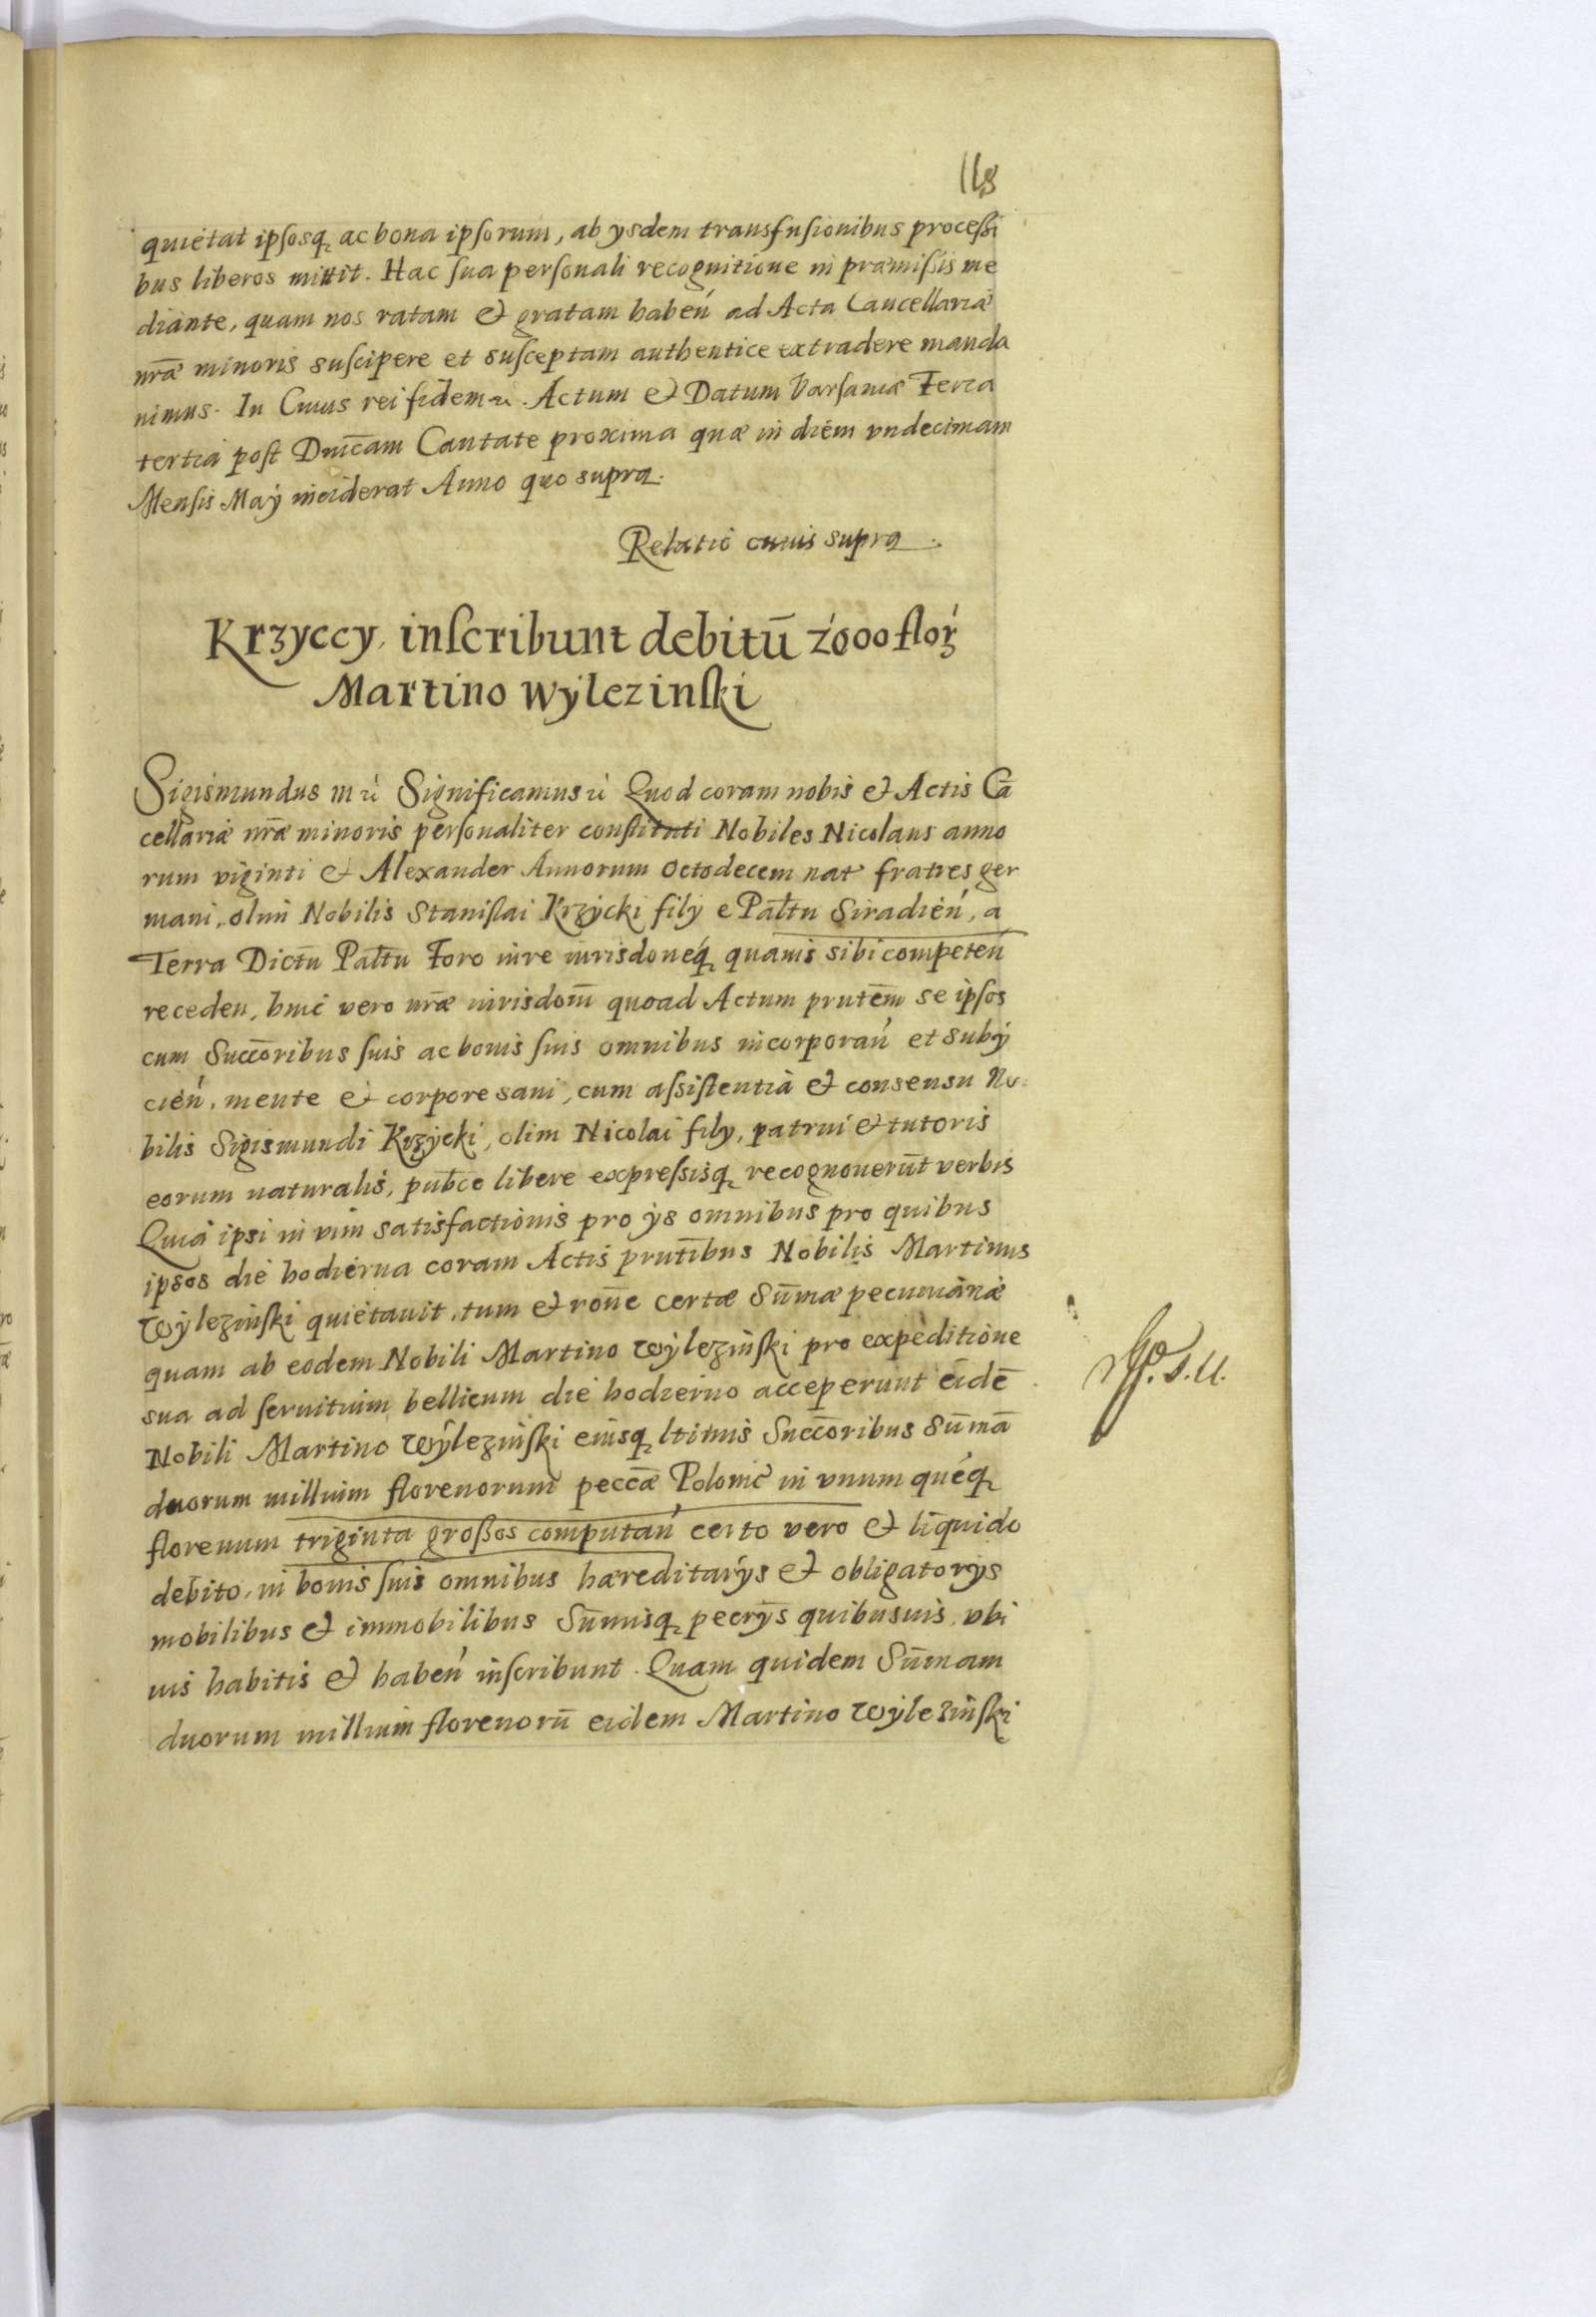 118
quietat ipsosq, ac bona ipsorum, ab ysdem transfusionibus processi
bus liberos mittit. Hac sua personali recognitione in præmissis me
diante, quam nos ratam et gratam haben ad Acta Cancellariæ
nr̄æ minoris suscipere et susceptam authentice extradere manda
nimus. In Cuius rei fidem Actum et Datum Varsaviæ Feria
tertia post Dnīcam Cantate proxima quæ in diem vndecimam
Mensis Maÿ inciderat Anno quo supra.
Relatio cuius supra.
Krzyccy inscribunt debitū 2000 flor
Martino Wÿlezinski
Sigismundus III Significamus Quod coram nobis et Actis Cā
cellariæ nr̄æ minoris personaliter constituti Nobiles Nicolaus anno
rum viginti et Alexander Annorum Octodecem nat fratres ger
mani, olim Nobilis Stanislai Krzÿcki filÿ e Pal̄tu Siradień, a
Terra Dictū Pal̄tu Foro iure iurisdoneq, quauis sibi competeń
receden, huic vero nr̄æ iurisdom̄ quoad Actum pn̄tem se ipsos
cum Succōribus suis ac bonis suis omnibus incorporań et subÿ
cień, mente et corpore sani, cum assistentia et consensu No
bilis Sigismundi Krzÿcki, olim Nicolai filÿ, patrui et tutoris
eorum naturalis, pub̄ce libere expressisq, recognouerūt verbis
Quia ipsi in vim satisfactionis pro ÿs omnibus pro quibus
ipsos die hodierna coram Actis pn̄tibus Nobilis Martinus
Wÿlezinski quietauit, tum et rōne certæ Sūmæ pecuniariæ
quam ab eodem Nobili Martino Wÿlezinski pro expeditione
sua ad seruitium bellicum die hodierno acceperunt eidē
Nobili Martino Wÿlezinski eiusq, ltimis Succōribus Sūmā
duorum millium florenorum peccæ Polonic in vnum quēq,
florenum triginta grossos computań certo vero et liquido
debito, in bonis suis omnibus hæreditarÿs et obligatorÿs
mobilibus et immobilibus Sūmisq, pecrÿs quibusuis, vbi
uis habitis et habeń inscribunt. Quam quidem Sūmam
duorum millium florenorū eidem Martino Wÿlezinski